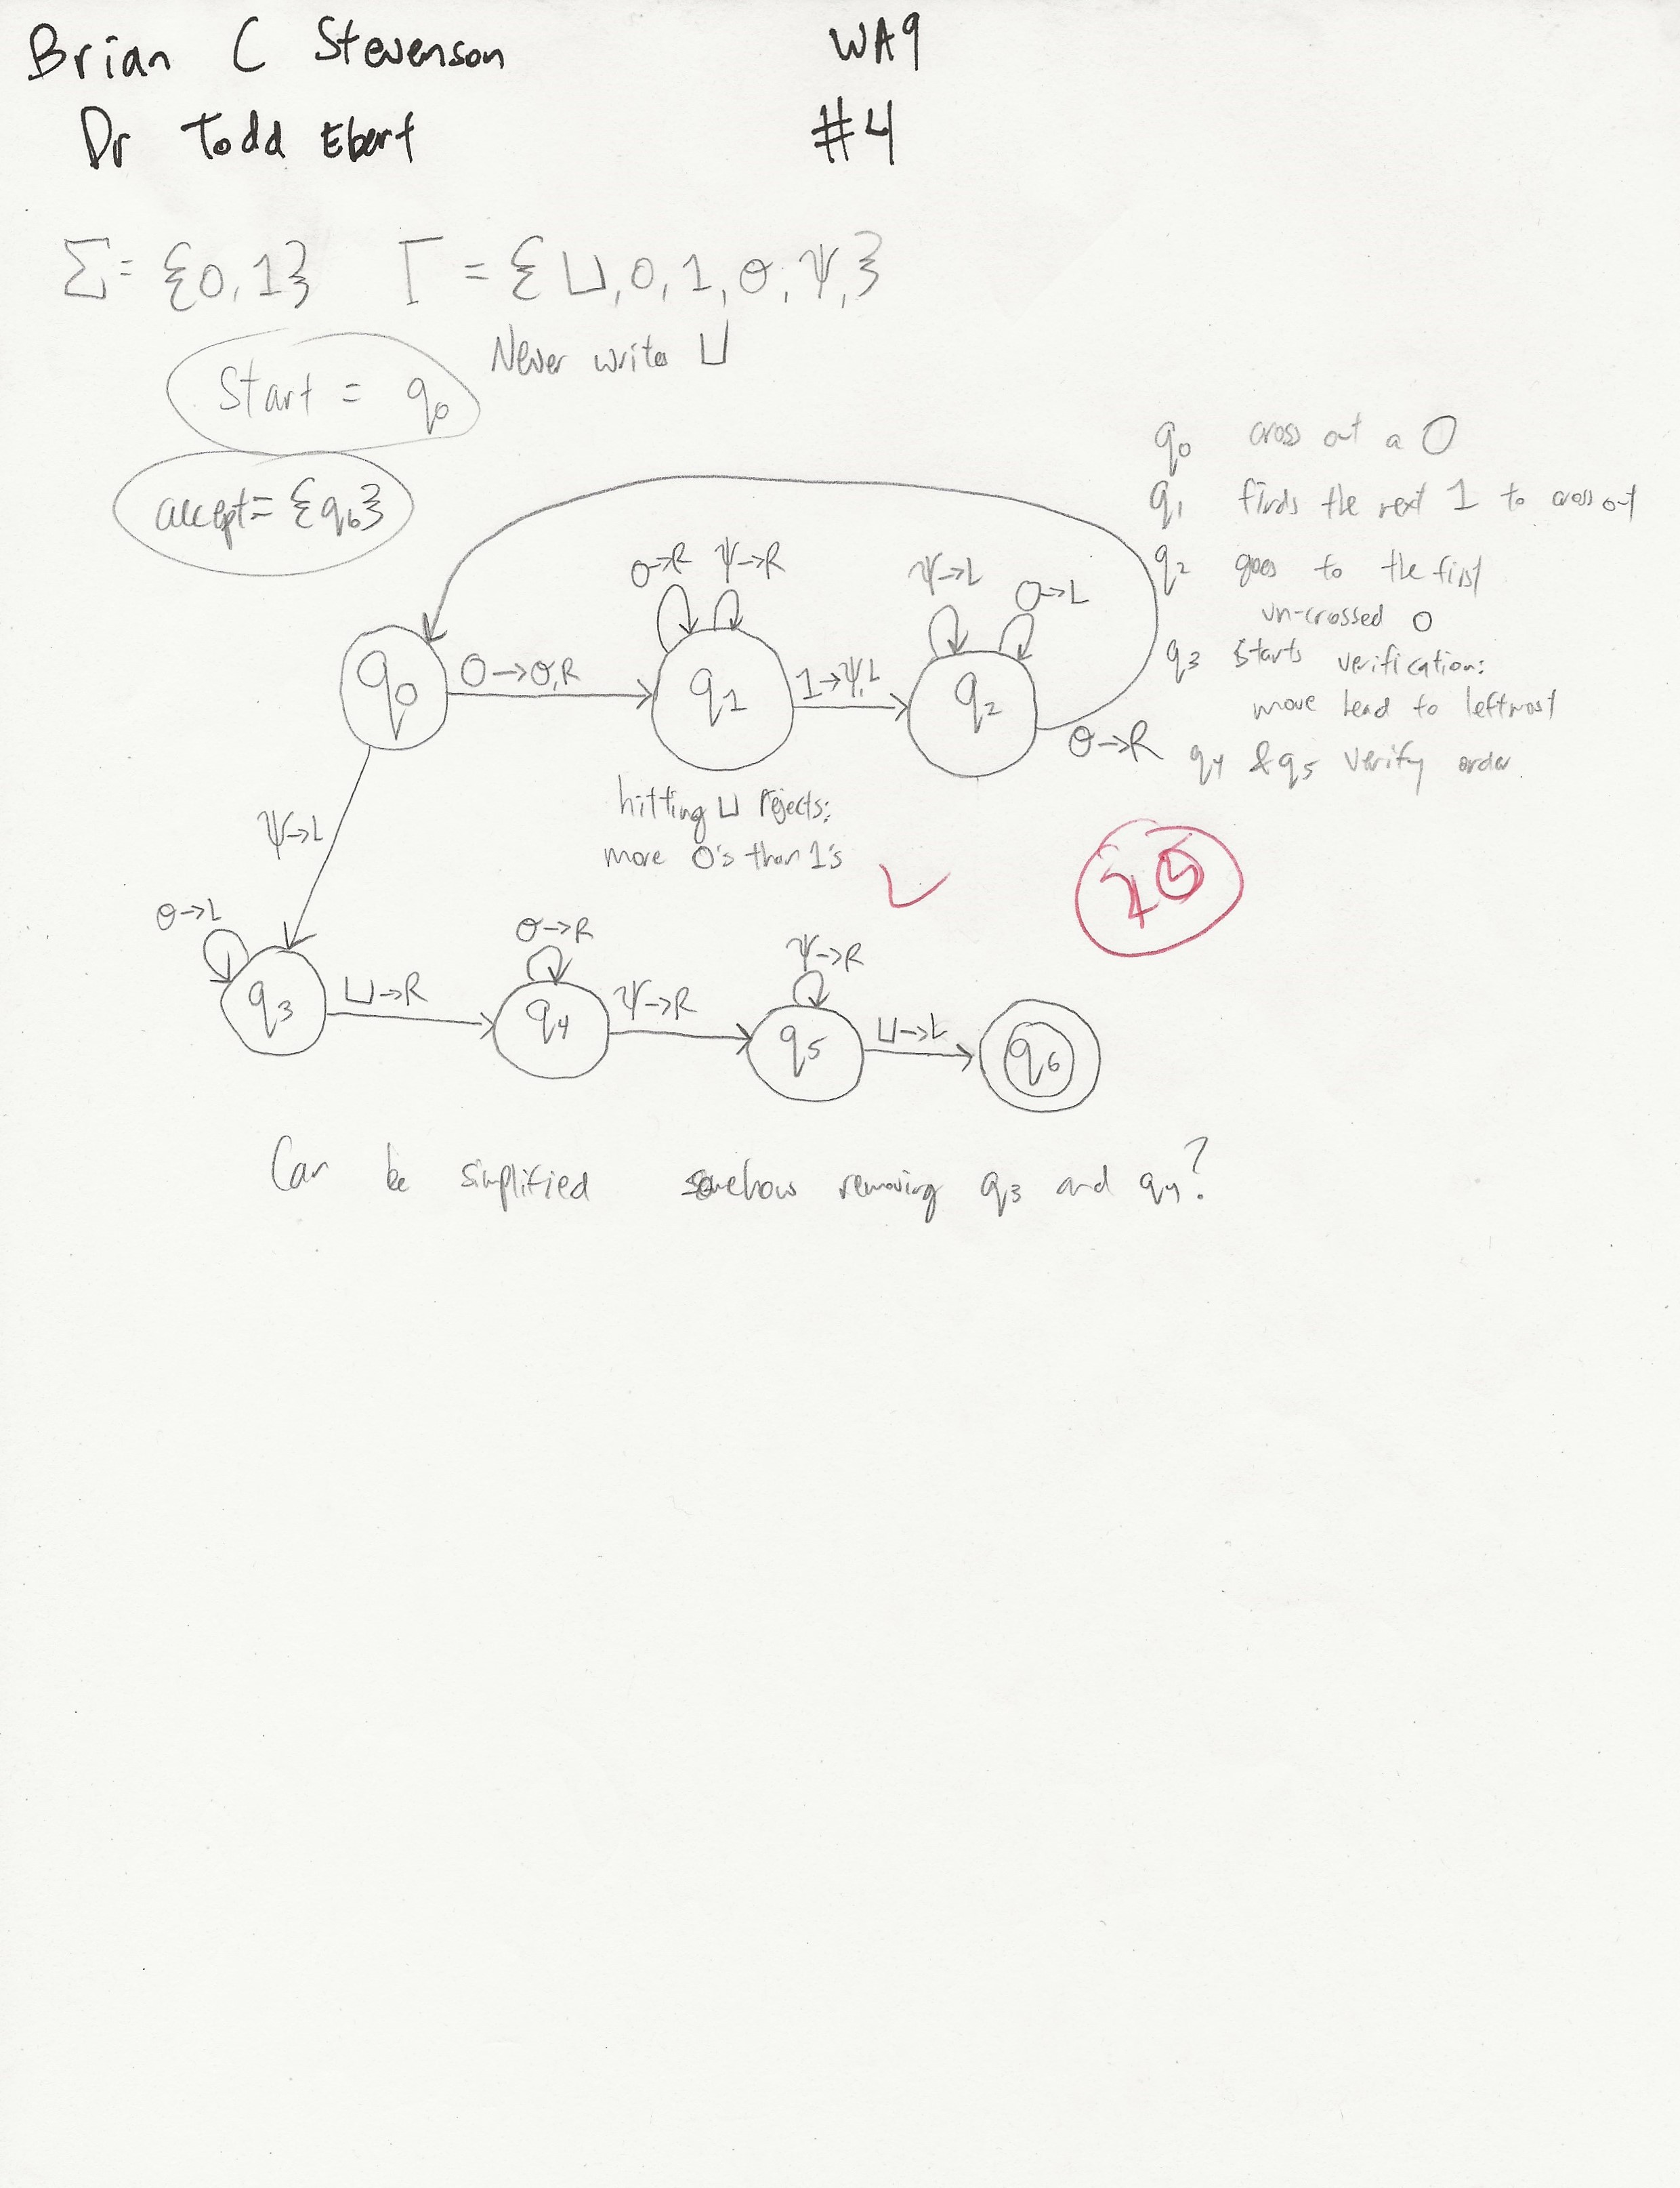 Brian C Stevenson WA9
Dr Todd Ebert #4
Σ = {0, 1} Γ = {⊔, 0, 1, θ, Ψ,}
Never writes ⊔
Start = q0
accept = {q6}
q0 cross out a 0
q1 finds the next 1 to cross out
q2 goes to the first
un-crossed 0
q3 starts verification:
move head to leftmost
q4 & q5 verify order.
0→R Ψ→R Ψ→L 0→L
q0 0→θ,R q1 1→Ψ,L q2
θ→R
hitting ⊔ rejects:
more 0's than 1's
Ψ→L
θ→L θ→R Ψ→R
q3 ⊔→R q4 Ψ→R q5 ⊔→L q6
Can be simplified somehow removing q3 and q4?